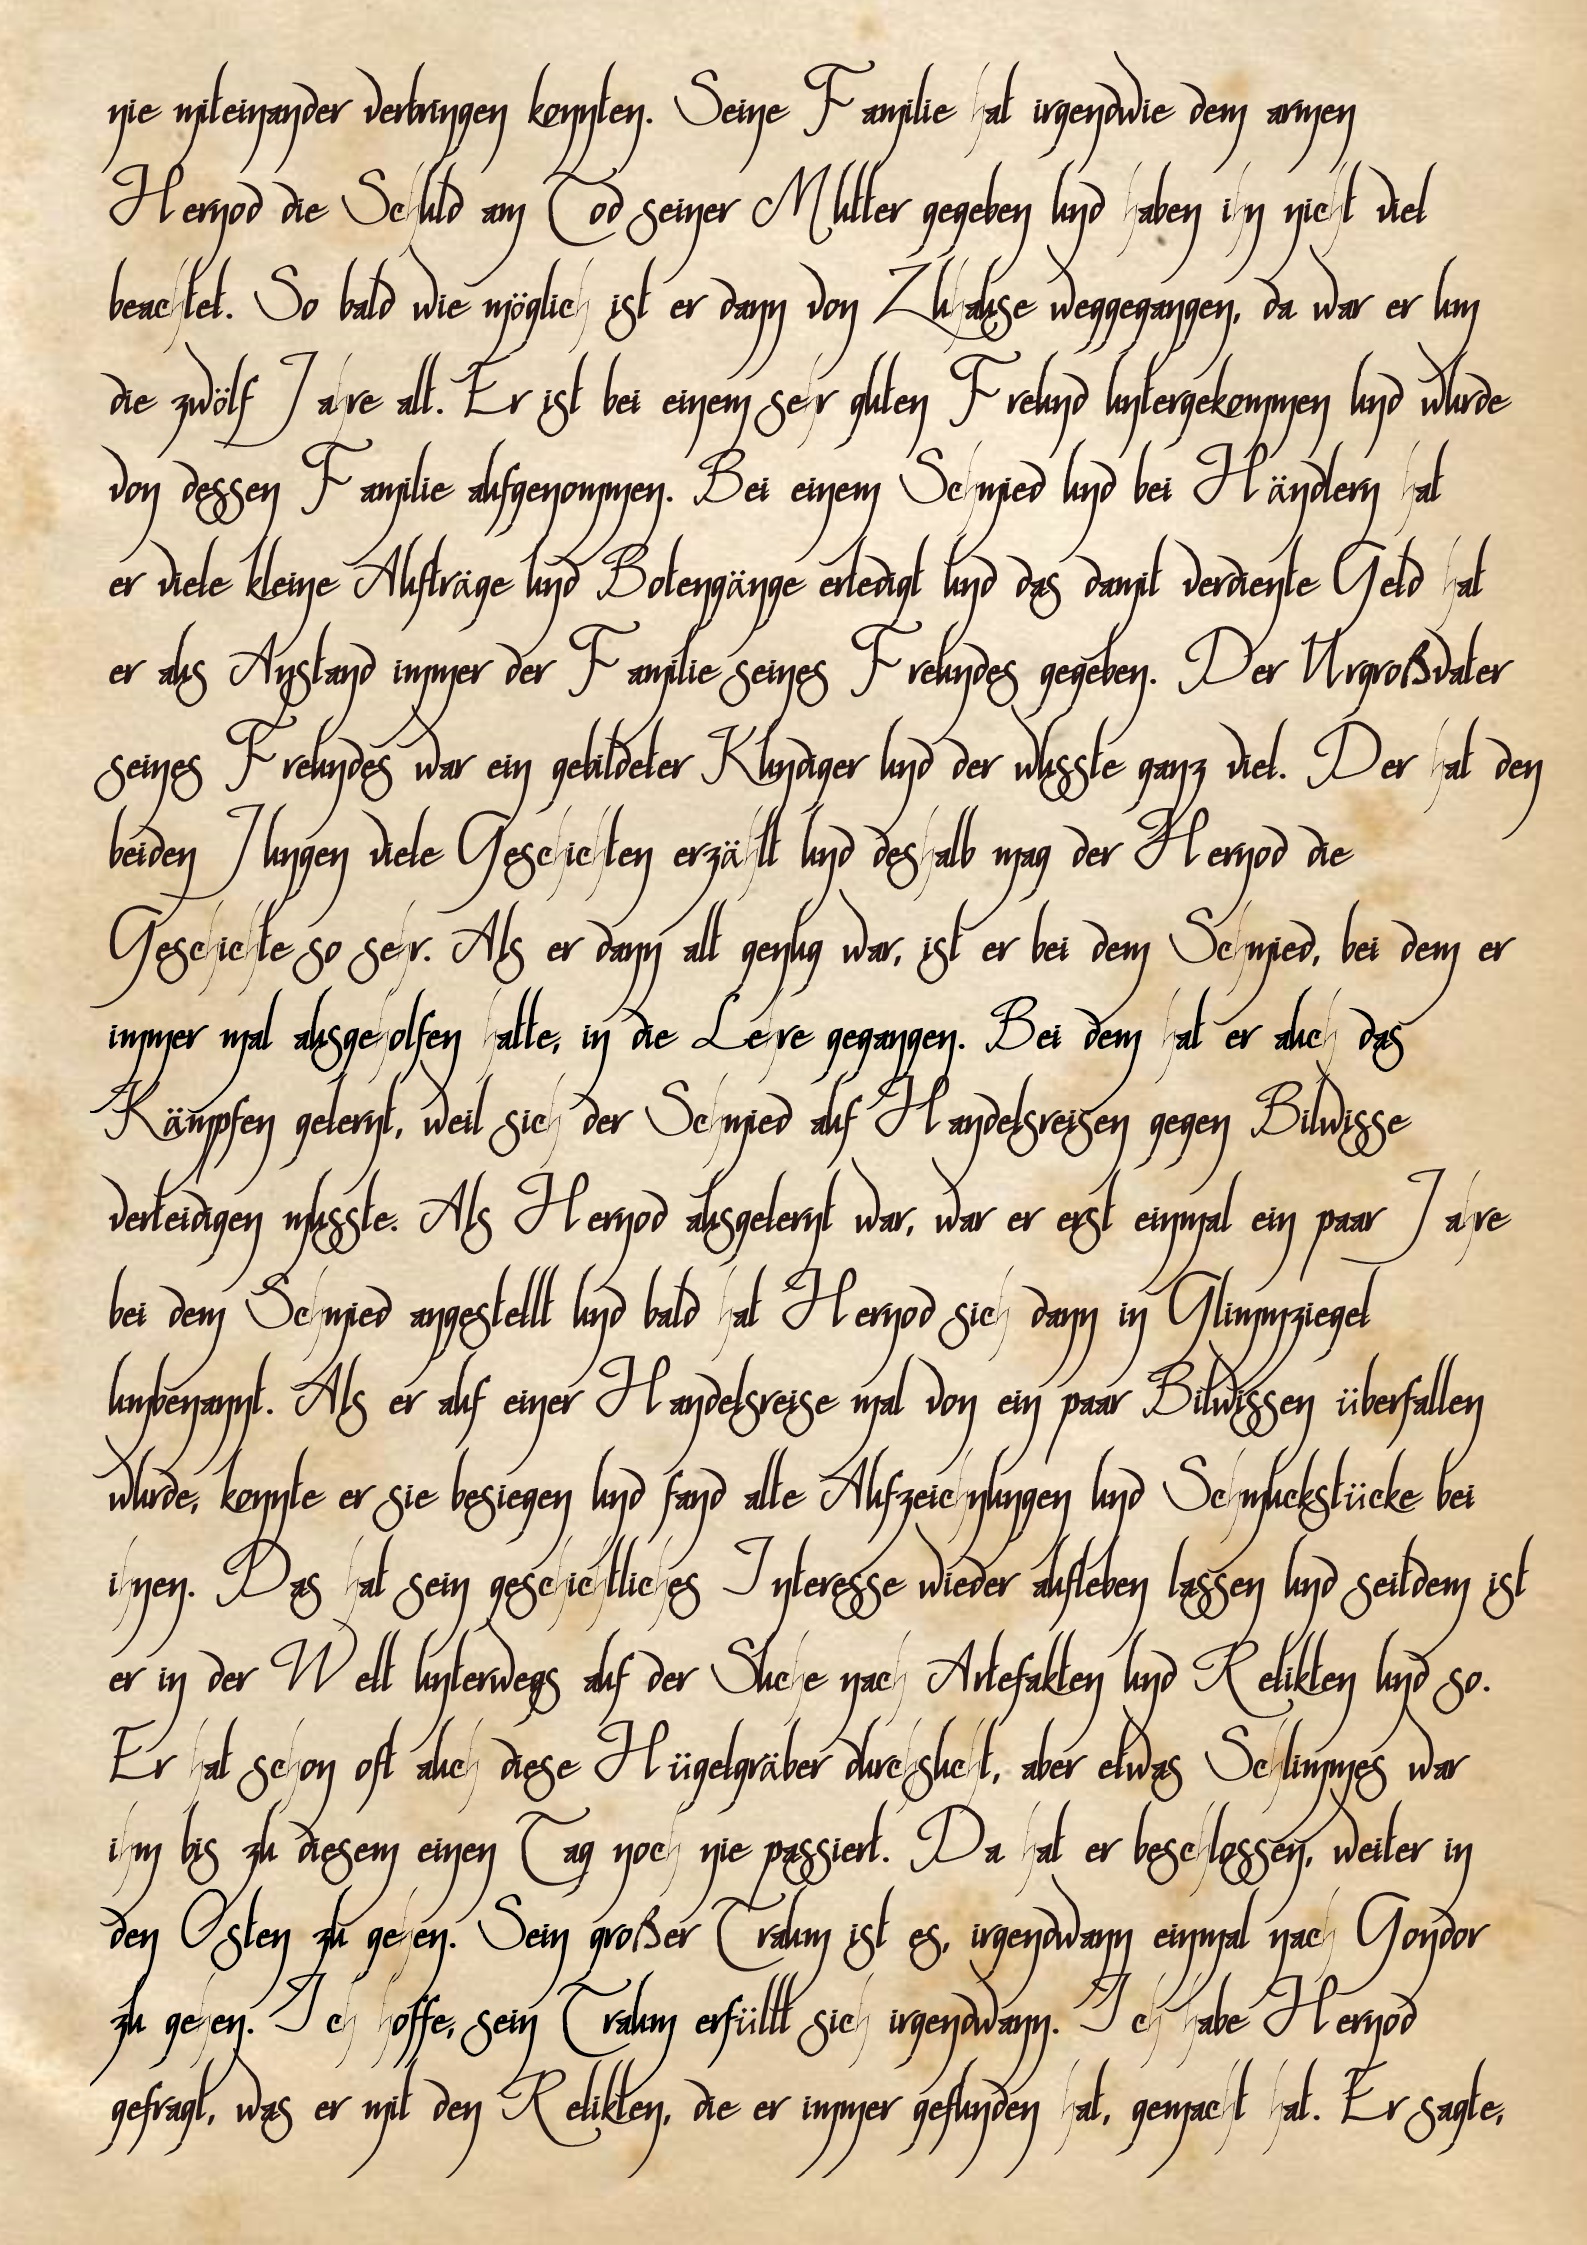 nie miteinander verbringen konnten. Seine Familie hat irgendwie dem armen
Hernod die Schuld am Tod seiner Mutter gegeben und haben ihn nicht viel
beachtet. So bald wie möglich ist er dann von Zuhause weggegangen, da war er um
die zwölf Jahre alt. Er ist bei einem sehr guten Freund untergekommen und wurde
von dessen Familie aufgenommen. Bei einem Schmied und bei Händlern hat
er viele kleine Aufträge und Botengänge erledigt und das damit verdiente Geld hat
er aus Anstand immer der Familie seines Freundes gegeben. Der Urgroßvater
seines Freundes war ein gebildeter Kundiger und der wusste ganz viel. Der hat den
beiden Jungen viele Geschichten erzählt und deshalb mag der Hernod die
Geschichte so sehr. Als er dann alt genug war, ist er bei dem Schmied, bei dem er
immer mal ausgeholfen hatte, in die Lehre gegangen. Bei dem hat er auch das
Kämpfen gelernt, weil sich der Schmied auf Handelsreisen gegen Bilwisse
verteidigen musste. Als Hernod ausgelernt war, war er erst einmal ein paar Jahre
bei dem Schmied angestellt und bald hat Hernod sich dann in Glimmziegel
umbenannt. Als er auf einer Handelsreise mal von ein paar Bilwissen überfallen
wurde, konnte er sie besiegen und fand alte Aufzeichnungen und Schmuckstücke bei
ihnen. Das hat sein geschichtliches Interesse wieder aufleben lassen und seitdem ist
er in der Welt unterwegs auf der Suche nach Artefakten und Relikten und so.
Er hat schon oft auch diese Hügelgräber durchsucht, aber etwas Schlimmes war
ihm bis zu diesem einen Tag noch nie passiert. Da hat er beschlossen, weiter in
den Osten zu gehen. Sein großer Traum ist es, irgendwann einmal nach Gondor
zu gehen. Ich hoffe, sein Traum erfüllt sich irgendwann. Ich habe Hernod
gefragt, was er mit den Relikten, die er immer gefunden hat, gemacht hat. Er sagte,